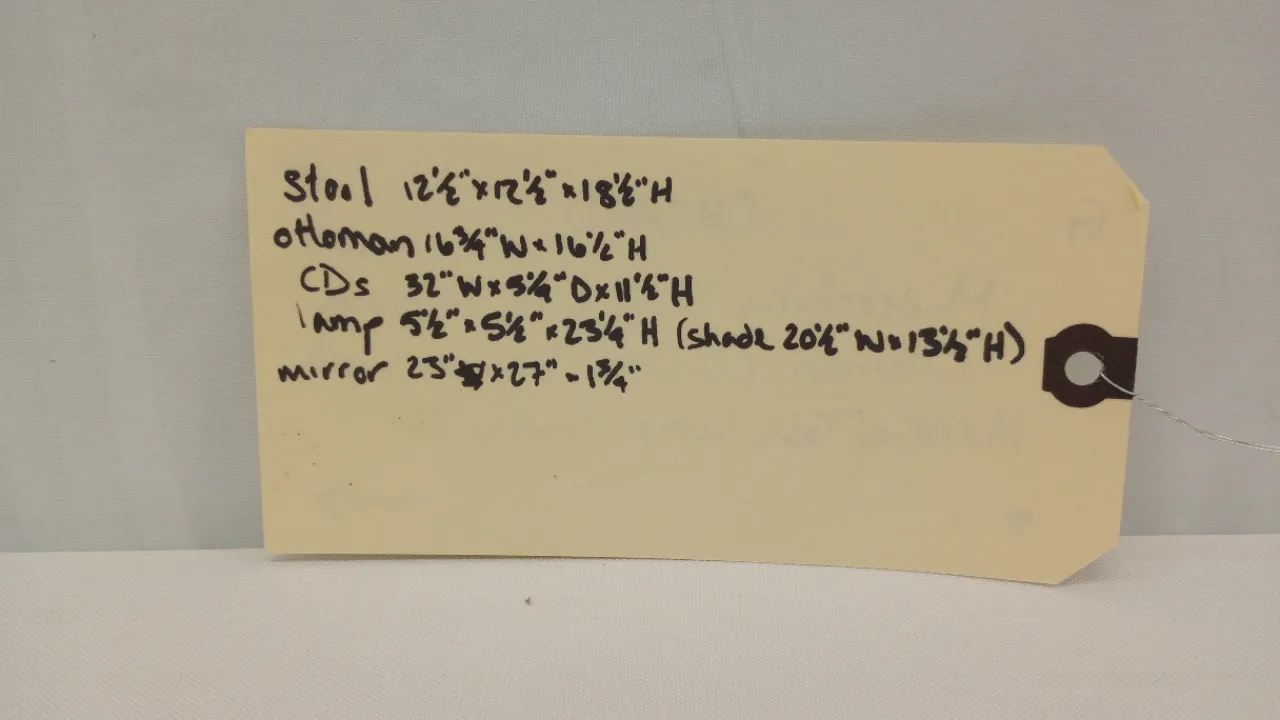 Stool 12½" x 12½" x 18½" H
ottoman 16¾" W x 16½" H
CDs 32" W x 5¼" D x 11½" H
lamp 5½" x 5½" x 23¼" H (shade 20½" W x 13½" H)
mirror 23" x 27" x 1¾"